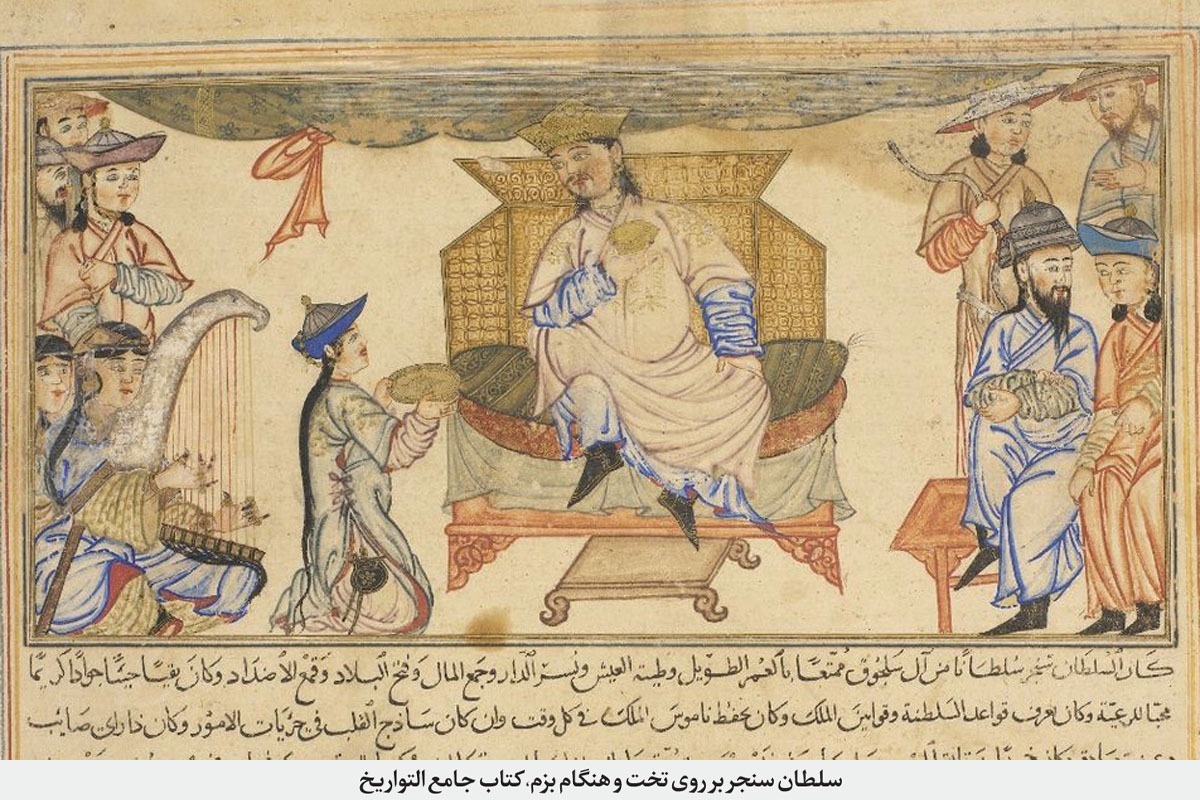 كان السلطان سنجر سلطانا من آل سلجوق ممتعا بالعمر الطويل وطيبة العيش ويسر الدار وجمع المال وفتح البلاد وقمع الاضداد وكان جوادا كريما
محبا للرعية وكان يعرف قواعد السلطنة وقوانين الملك وكان يحفظ ناموس الملك في كل وقت وان كان ساذج القلب في جزيات الامور وكان ذا راي صايب
سلطان سنجر بر روی تخت و هنگام بزم، کتاب جامع التواریخ